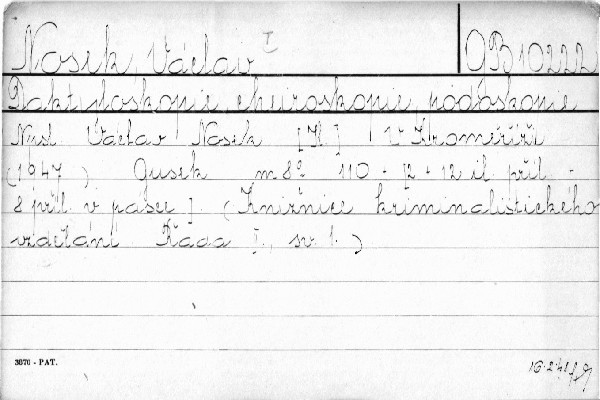 Nosek, Václav I GB10222
Daktyloskopie, cheiroskopie, podoskopie
Naps. Václav Nosek [Il.] V Kroměříži
(1947) Gusek m 8° 110 - [2 + 12 il. příl. -
8 příl. v pásce]. (Knižnice kriminalistického
vzdělání Řada I., sv. 1.)
3876 - PAT.